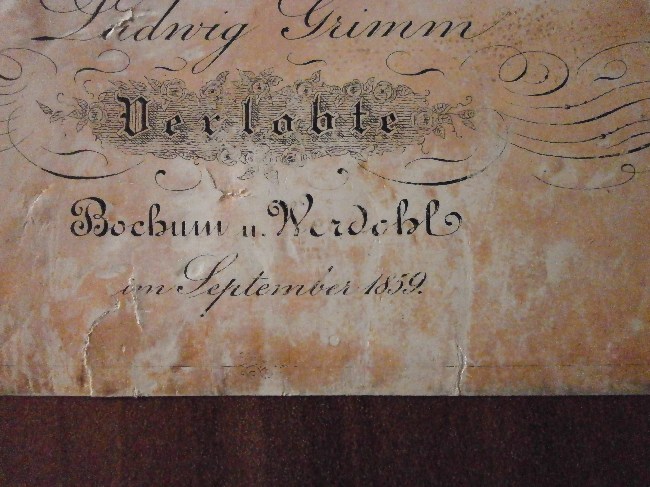 Ludwig Grimm
Verlobte
Bochum u. Werdohl
im September 1859.